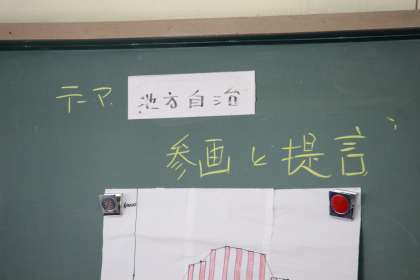 テーマ 地方自治
参画と提言